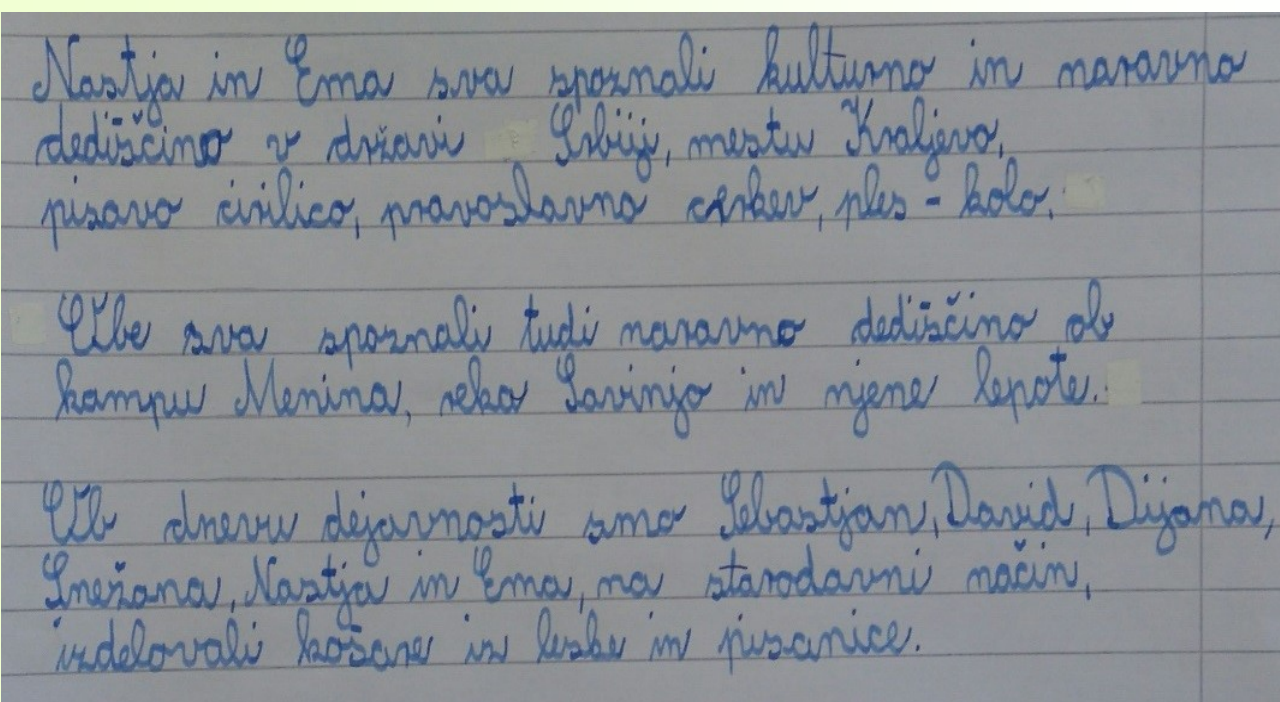 Nastja in Ema sva spoznali kulturno in naravno
dediščino v državi Srbiji, mestu Kraljevo,
pisavo cirilico, pravoslavno cerkev, ples - kolo.
Obe sva spoznali tudi naravno dediščino ob
kampu Menina, reko Savinjo in njene lepote.
Ob dnevu dejavnosti smo Sebastjan, David, Dijana,
Snežana, Nastja in Ema, na starodavni način,
izdelovali košare iz leske in pisanice.